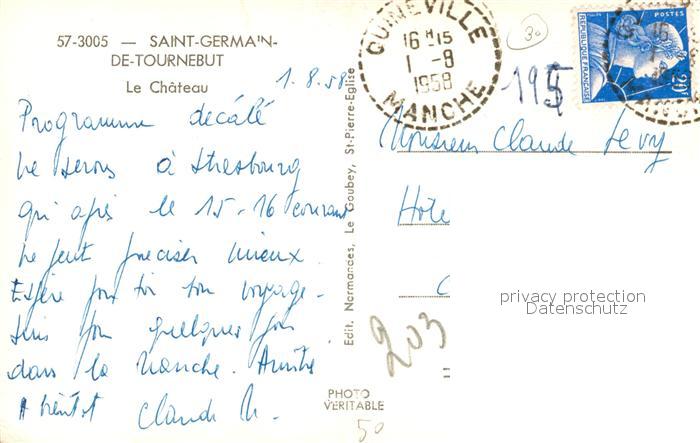 57-3005 — SAINT-GERMAIN-
DE-TOURNEBUT
Le Château
1.8.58
Programme décalé
Ne serons à Strasbourg
qu'après le 15-16 courant
Ne peut préciser mieux.
Espère pour toi bon voyage.
Suis pour quelques jours
dans la Manche. Amitiés
A bientôt Claude M.
Edit. Normandes, Le Goubey, St-Pierre-Eglise
PHOTO
VERITABLE
QUINEVILLE
16 H 15
1 -8
1958
MANCHE
30
195
POSTES
REPUBLIQUE FRANÇAISE
20F
Monsieur Claude Levy
Hôte
203
50
privacy protection
Datenschutz